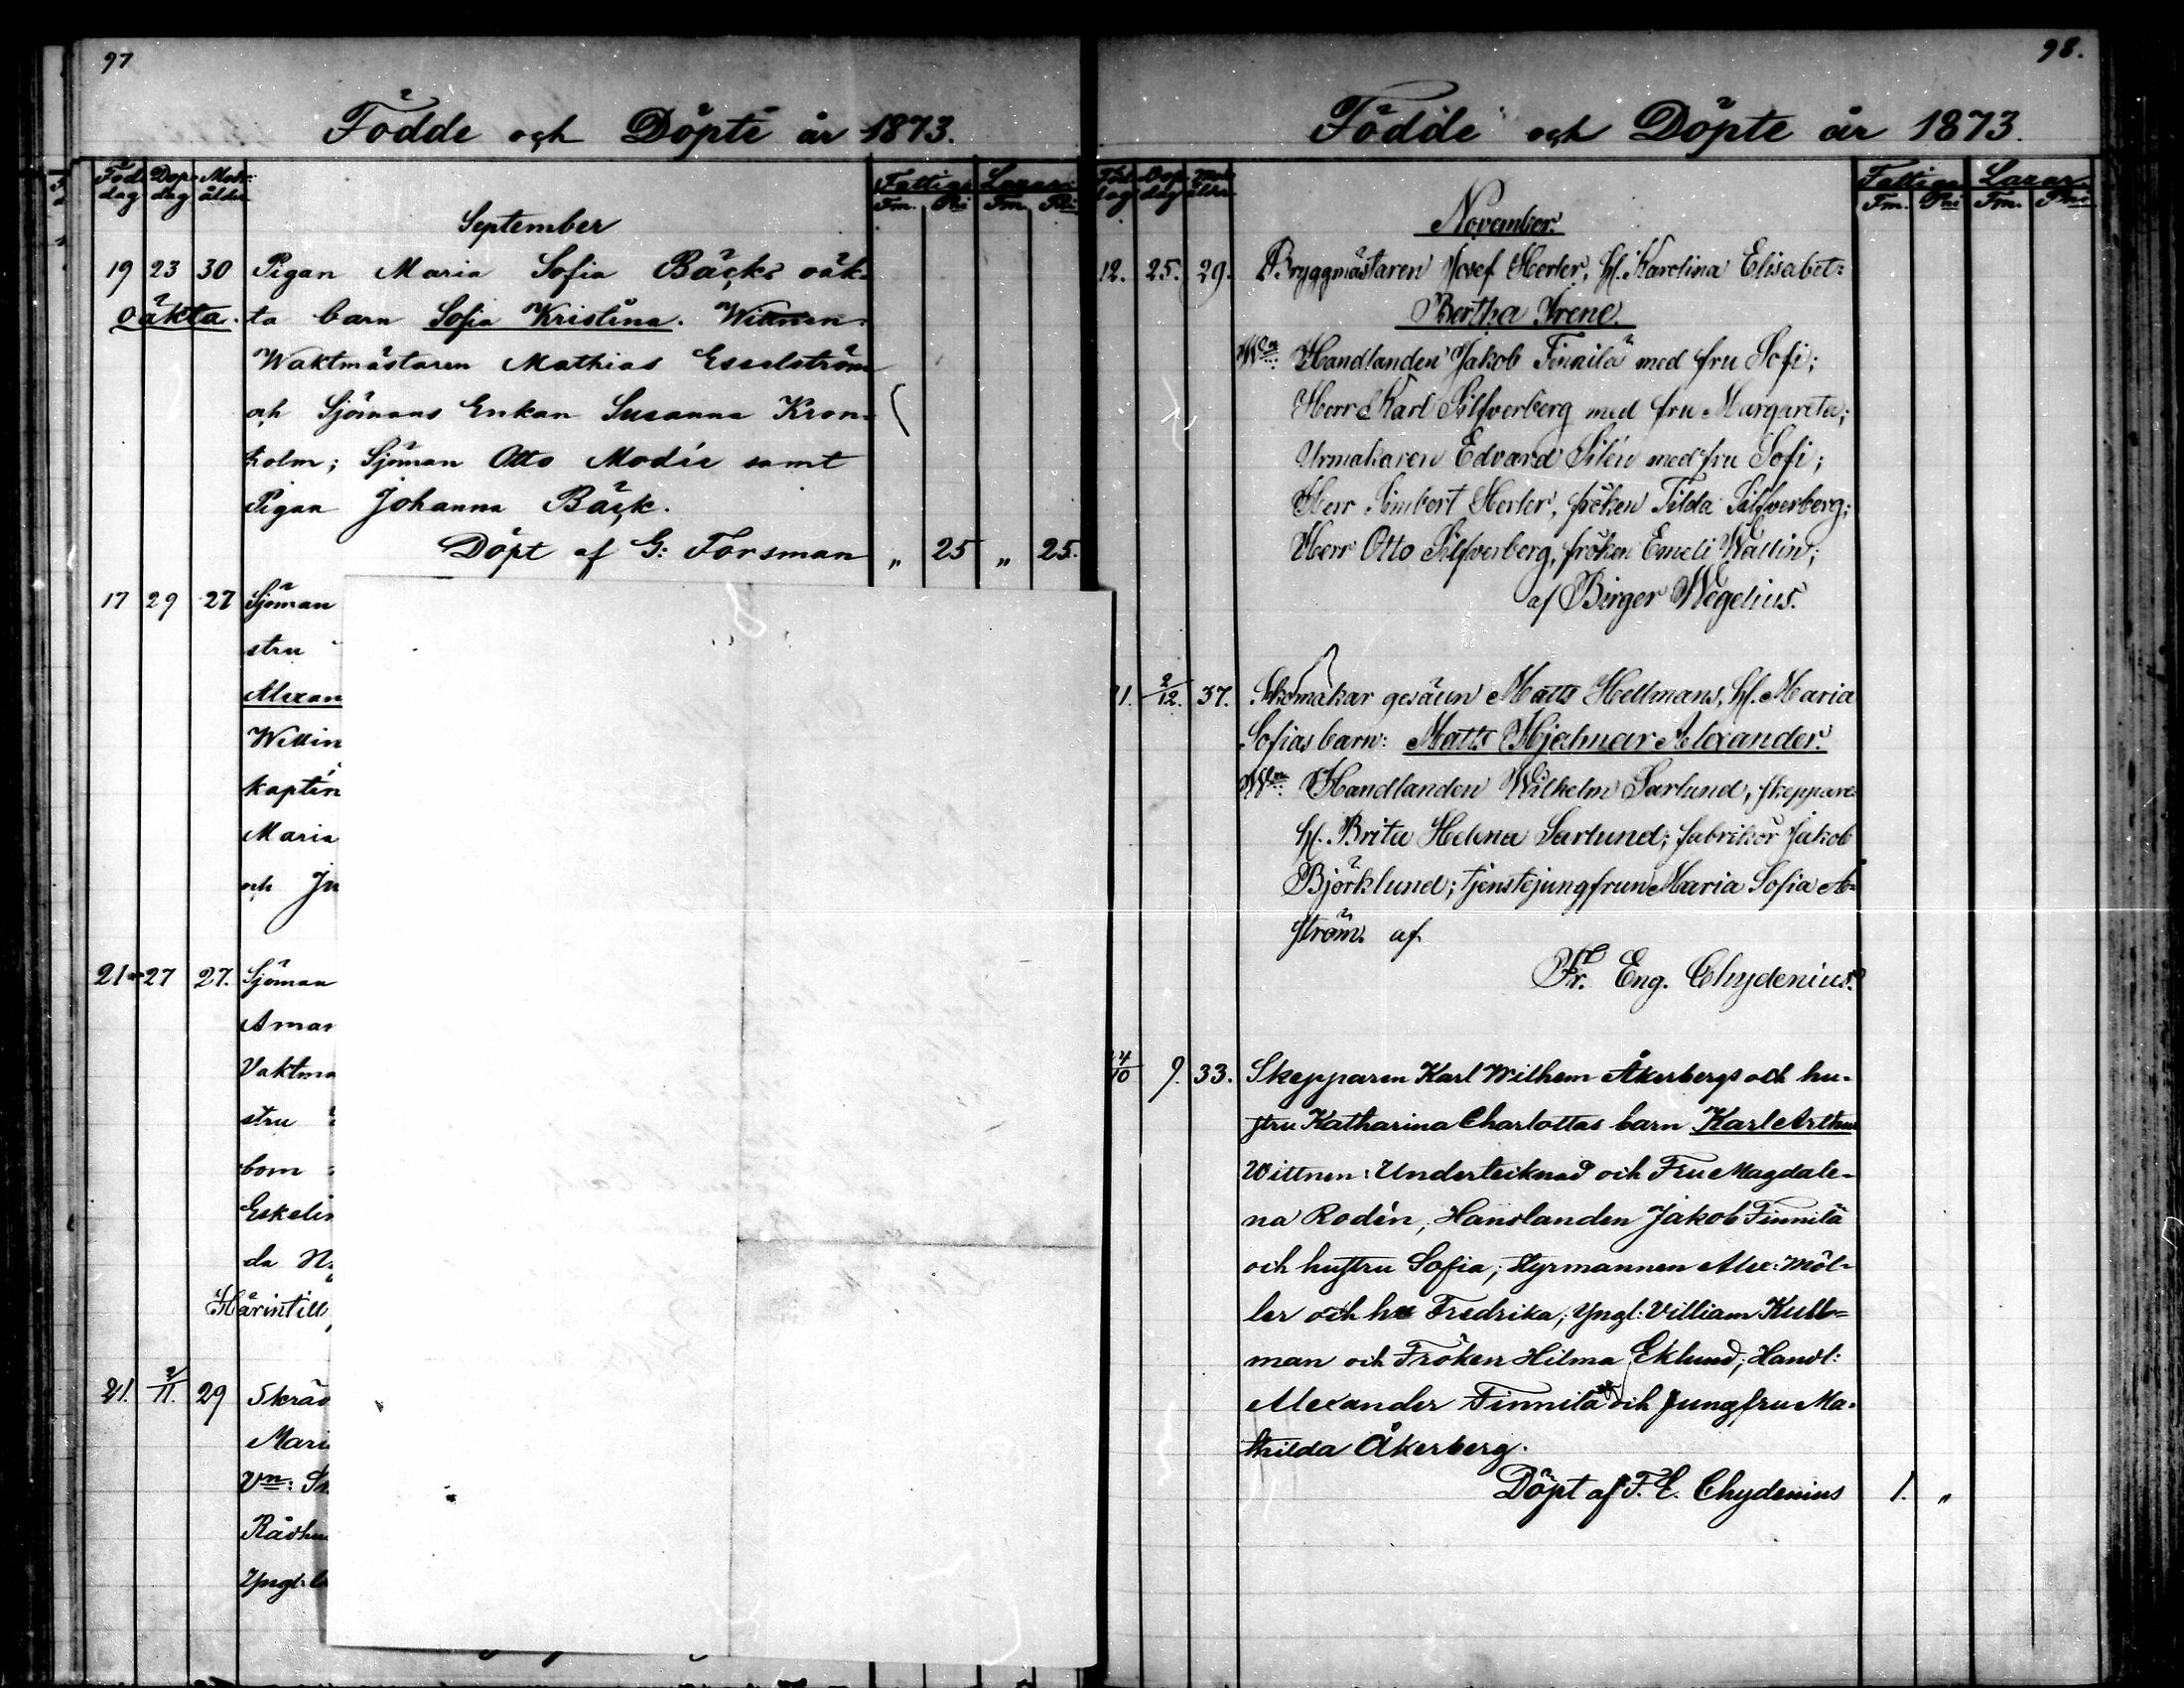 97
Födde och Döpte år 1873.
Föd. dag Dop dag Mod: ålder Fattiga Fm. Pi Lazar: Fm. Pi
September
19 23 30 Pigan Maria Sofia Bäcks oäk-
oäkta. ta barn Sofia Kristina. Wittnen:
Waktmästaren Mathias Esselström
och Sjömans Enkan Susanna Kron-
holm; Sjöman Otto Modée samt
Pigan Johanna Bäck.
Döpt af G: Forsman „ 25 „ 25.
17 29 27 Sjöman
stru
Alexan
Wittn
kaptén
Maria
och Ju
21 27 27. Sjöman
Aman
Vaktma
stru
bom
Eskelin
da
Härintill
21. 2/11. 29 Skräd
Mari
Vn:
Rådhu
Yngl:
98.
Födde och Döpte år 1873.
Föd. dag Dop dag Mod ålder Fattiga Fm. Pni Lazar. Fm. Pni
November.
12. 25. 29. Bryggmästaren Josef Herler, h. Karolina Elisabet:
Bertha Irene.
Wn: Handlanden Jakob Finnilä med fru Sofi;
Herr Karl Silfverberg med fru Margareta;
Urmakaren Edvard Silén med fru Sofi;
Herr Simbert Herler, fröken Tilda Silfverberg;
Herr Otto Silfverberg, fröken Emeli Wallin;
af Birger Wegelius.
1. 2/12. 37. Skomakar gesällen Matts Hellmans, h. Maria
Sofias barn: Matts Hjalmar Alexander.
Wn: Handlanden Wilhelm Sarlund, skeppare
h. Brita Helena Sarlund; fabrikör Jakob
Björklund; tjenstejungfrun Maria Sofia Å-
ström. af
Fr. Eng. Chydenius.
/10 9. 33. Skepparen Karl Wilhem Åkerbergs och hu-
stru Katharina Charlottas barn Karl Arthur
Wittnen: Undertecknad och Fru Magdale-
na Rodén, Handlanden Jakob Finnilä
och hustru Sofia; Styrmannen Alex: Möl-
ler och hu Fredrika; Yngl: Villiam Kull-
man och Fröken Hilma Eklund; Handl:
Alexander Finnilä och Jungfru Ma-
thilda Åkerberg.
Döpt af F. E. Chydenius 1. „